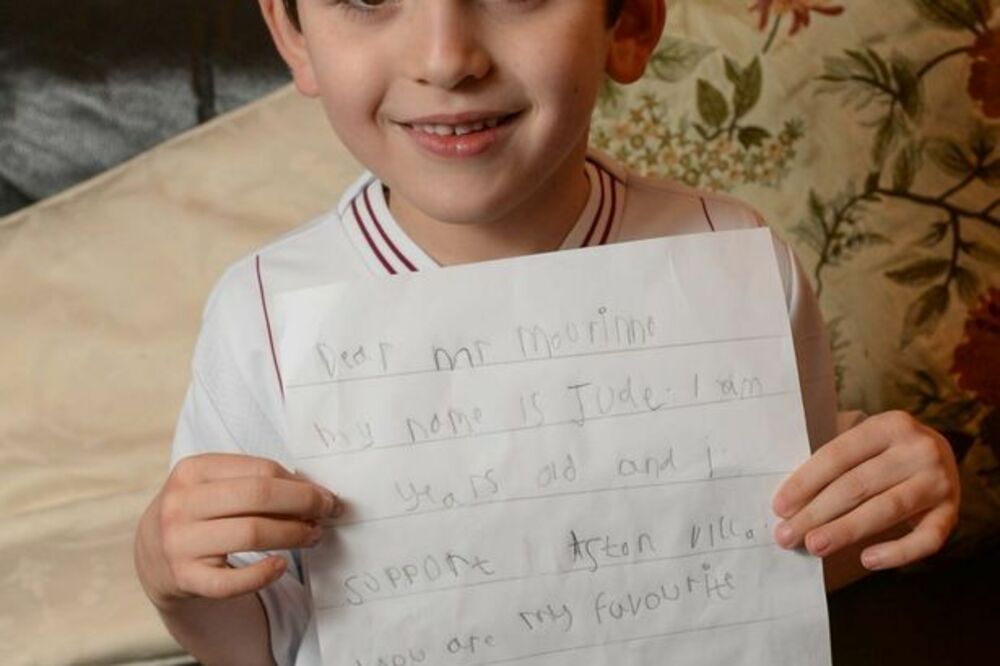 Dear Mr Mourinho
my name is Jude. I am
years old and I
support Aston villa.
you are my favourite